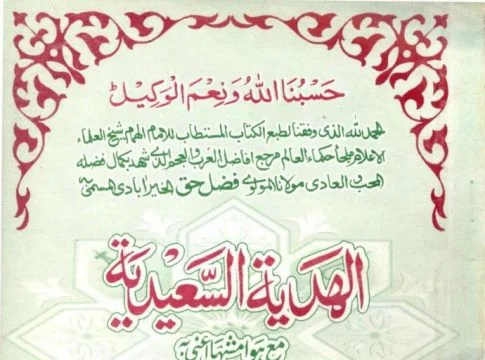 حَسْبُنَا اللهُ وَنِعْمَ الْوَكِيل
الحمد لله الذى وفقنا لطبع الكتاب المستطاب للامام الهمام شيخ العلماء
الاعلام ملجأ حكماء العالم مرجع افاضل العرب والعجم الذى شهد بكمال فضله
المحب والعادى مولانا المولوى فضل حق الخير ابادى المسمى بـ
الهدية السَّعيدية
مع هوامشها اعنى به